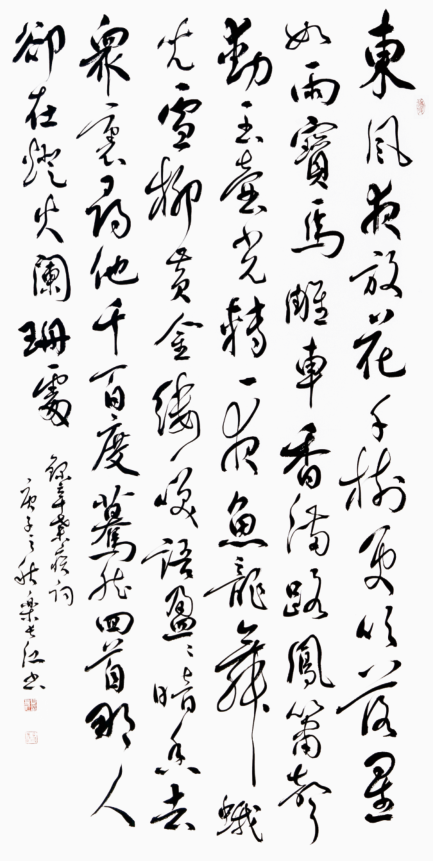 東風夜放花千樹更吹落星
如雨寶馬雕車香滿路鳳簫聲
動玉壺光轉一夜魚龍舞蛾
兒雪柳黃金縷笑語盈〻暗香去
眾裏尋他千百度驀然回首那人
卻在燈火闌珊處
錄辛棄疾詞
庚子之秋樂